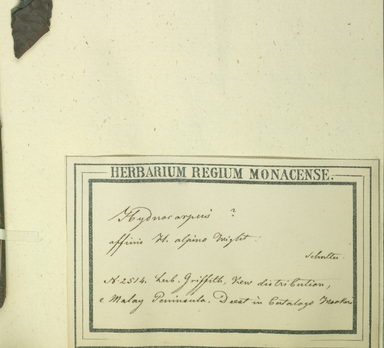 HERBARIUM REGIUM MONACENSE.
Hydnocarpus ?
affinis H. alpino Wight.
N 2514. herb. Griffith, Kew distribution,
e Malay Peninsula. Deest in Catalogo Hookeri